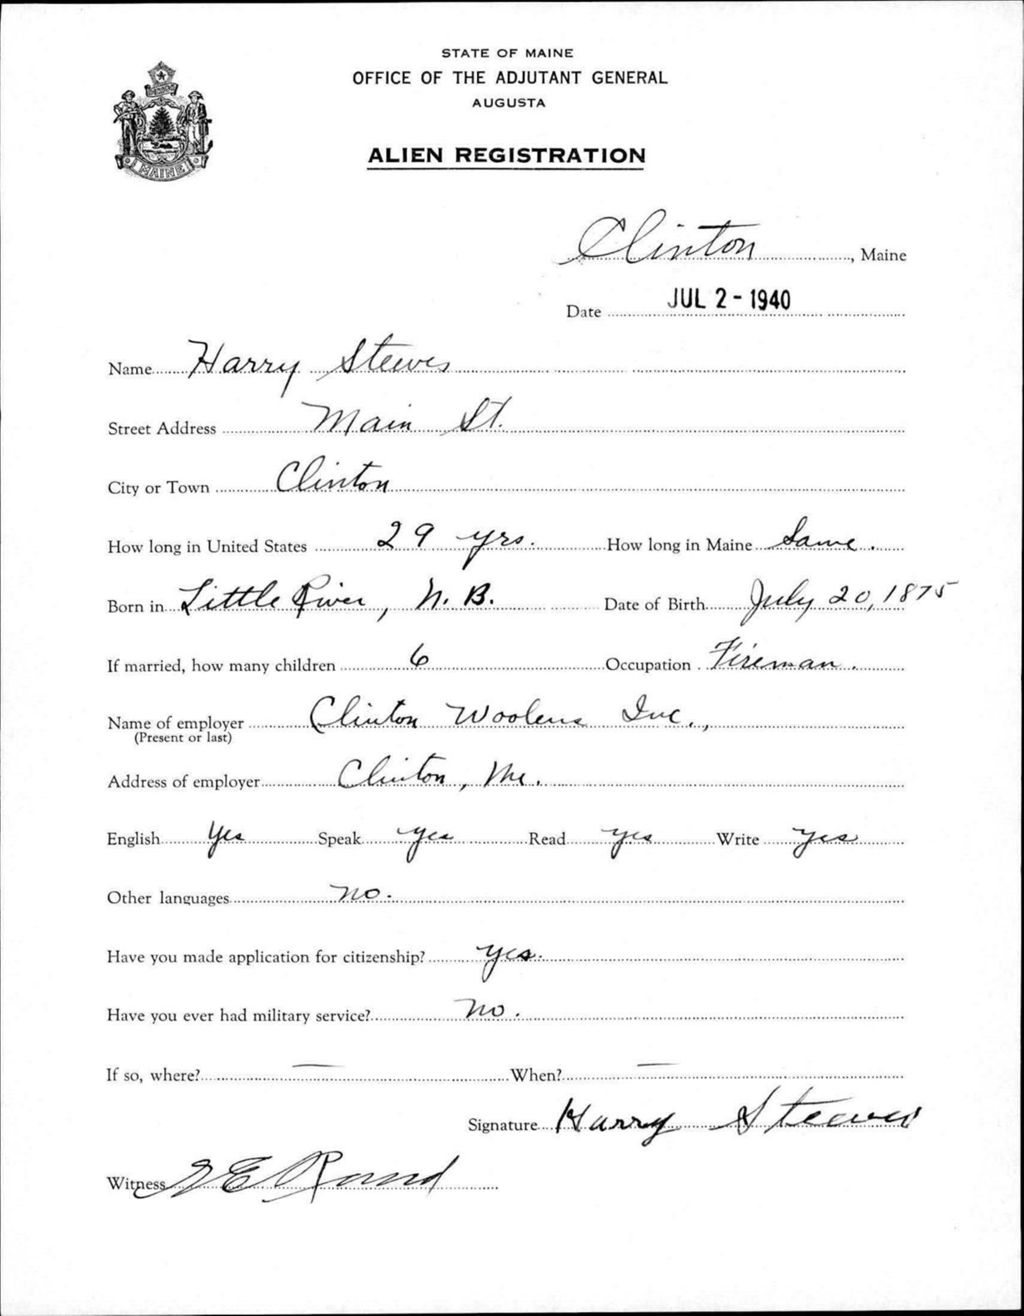 STATE OF MAINE
OFFICE OF THE ADJUTANT GENERAL
AUGUSTA
ALIEN REGISTRATION
MAINE
Clinton, Maine
Date JUL 2 - 1940
Name Harry Steeves
Street Address Main St.
City or Town Clinton
How long in United States 29 yrs. How long in Maine Same.
Born in Little River, N.B. Date of Birth July 20, 1875
If married, how many children 6 Occupation Fireman.
Name of employer Clinton Woolens Inc.,
(Present or last)
Address of employer Clinton, Me.
English Yes Speak yes Read yes Write yes
Other languages no.
Have you made application for citizenship? yes.
Have you ever had military service? no.
If so, where? — When? —
Signature Harry Steeves
Witness